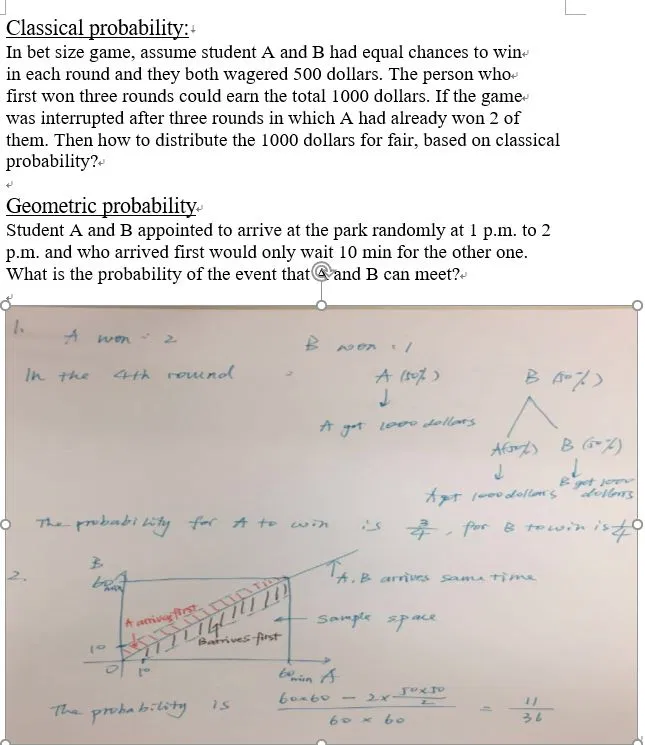 Classical probability:
In bet size game, assume student A and B had equal chances to win
in each round and they both wagered 500 dollars. The person who
first won three rounds could earn the total 1000 dollars. If the game
was interrupted after three rounds in which A had already won 2 of
them. Then how to distribute the 1000 dollars for fair, based on classical
probability?
Geometric probability
Student A and B appointed to arrive at the park randomly at 1 p.m. to 2
p.m. and who arrived first would only wait 10 min for the other one.
What is the probability of the event that A and B can meet?
1.
A won : 2 B won : 1
In the 4th round , A (50%) B (50%)
A get 1000 dollars
A(50%) B (50%)
A get 1000 dollars B get 1000 dollars
The probability for A to win is 3/4 , for B to win is 1/4
2.
B
60 min
A, B arrives same time
A arrives first
sample space
B arrives first
10
0 10 60 min A
The probability is (60x60 - 2x 50x50/2) / (60 x 60) = 11/36